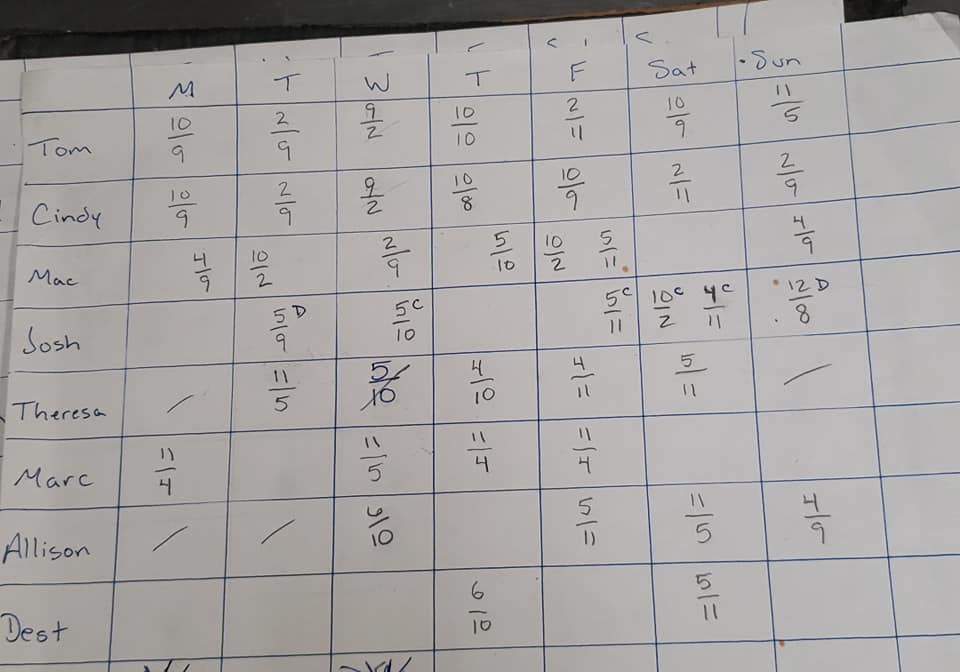 M T W T F Sat Sun
Tom 10/9 2/9 9/2 10/10 2/11 10/9 11/5
Cindy 10/9 2/9 9/2 10/8 10/9 2/11 2/9
Mac 4/9 10/2 2/9 5/10 10/2 5/11 4/9
Josh 5/9 D 5/10 C 5/11 C 10/2 C 4/11 C 12/8 D
Theresa / 11/5 5/10 4/10 4/11 5/11 /
Marc 11/4 11/5 11/4 11/4
Allison / / 6/10 5/11 11/5 4/9
Dest 6/10 5/11